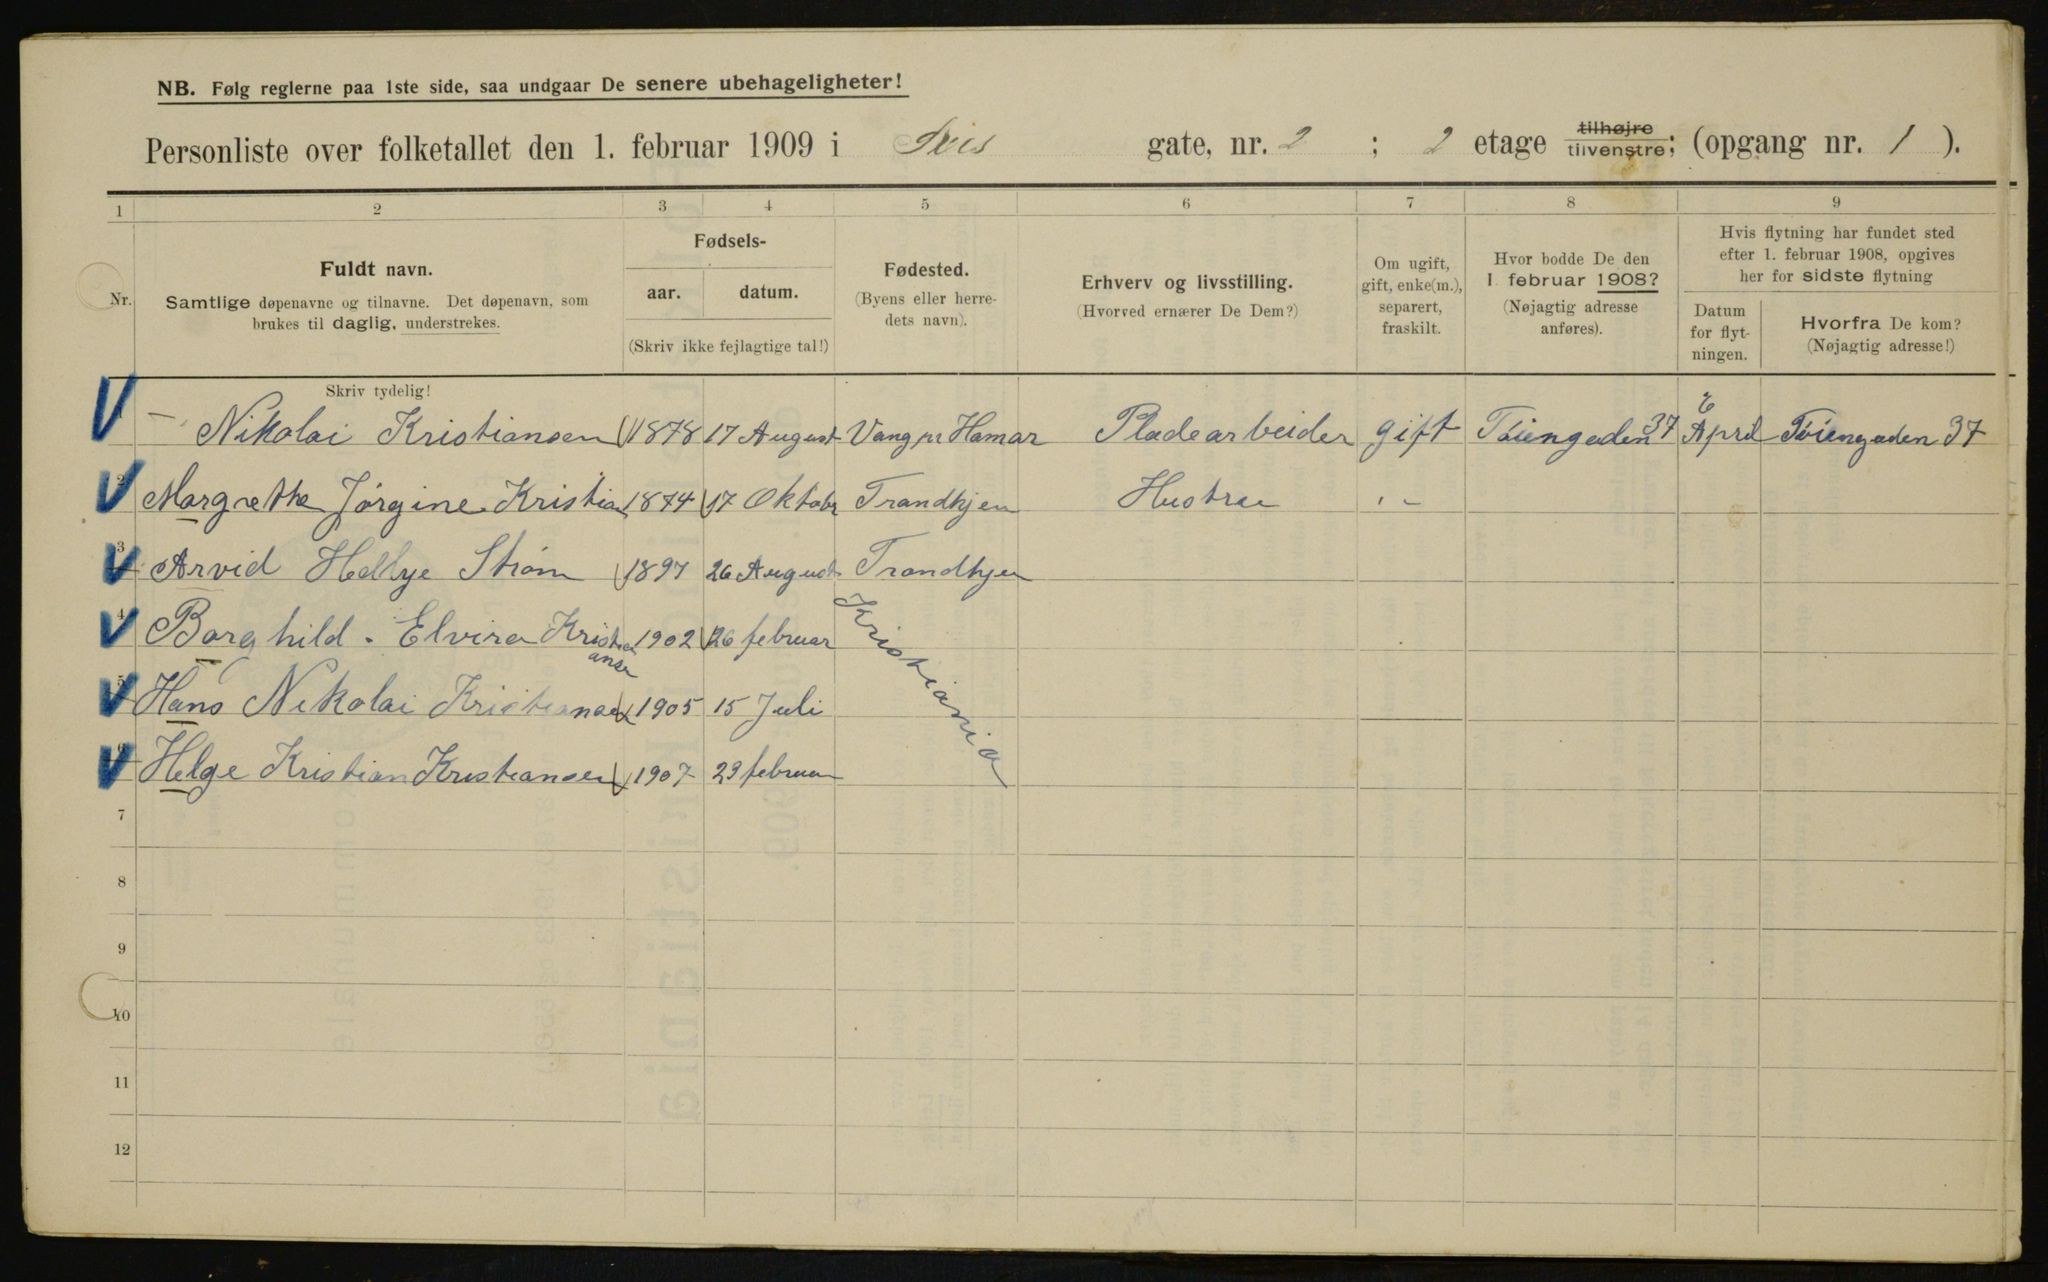 NB. Følg reglerne paa 1ste side, saa undgaar De senere ubehageligheter!
Personliste over folketallet den 1. februar 1909 i gate, nr. 2 ; 2 etage tilhøjre tilvenstre; (opgang nr. 1 ).
1 2 3 4 5 6 7 8 9
Nr.
Fuldt navn.
Samtlige døpenavne og tilnavne. Det døpenavn, som
brukes til daglig, understrekes.
Fødsels-
aar. datum.
(Skriv ikke fejlagtige tal!)
Fødested.
(Byens eller herre-
dets navn).
Erhverv og livsstilling.
(Hvorved ernærer De Dem?)
Om ugift,
gift, enke(m.),
separert,
fraskilt.
Hvor bodde De den
1. februar 1908?
(Nøjagtig adresse
anføres).
Hvis flytning har fundet sted
efter 1. februar 1908, opgives
her for sidste flytning
Datum
for flyt-
ningen.
Hvorfra De kom?
(Nøjagtig adresse!)
Skriv tydelig!
1 Nikolai Kristiansen 1878 17 August Vang pr Hamar Pladearbeider gift Tóiengaden 37 April Tóiengaden 37
2 Margrethe Jørgine Kristian 1874 17 Oktobr Trondhjem Hustru
3 Arvid Strøm 1897 26 August Trondhjem
4 Borghild Elvira Kristiansen 1902 26 februar Kristiania
5 Hans Nikolai Kristiansen 1905 15 Juli
6 Helge Kristian Kristiansen 1907 23 februar
7
8
9
10
11
12